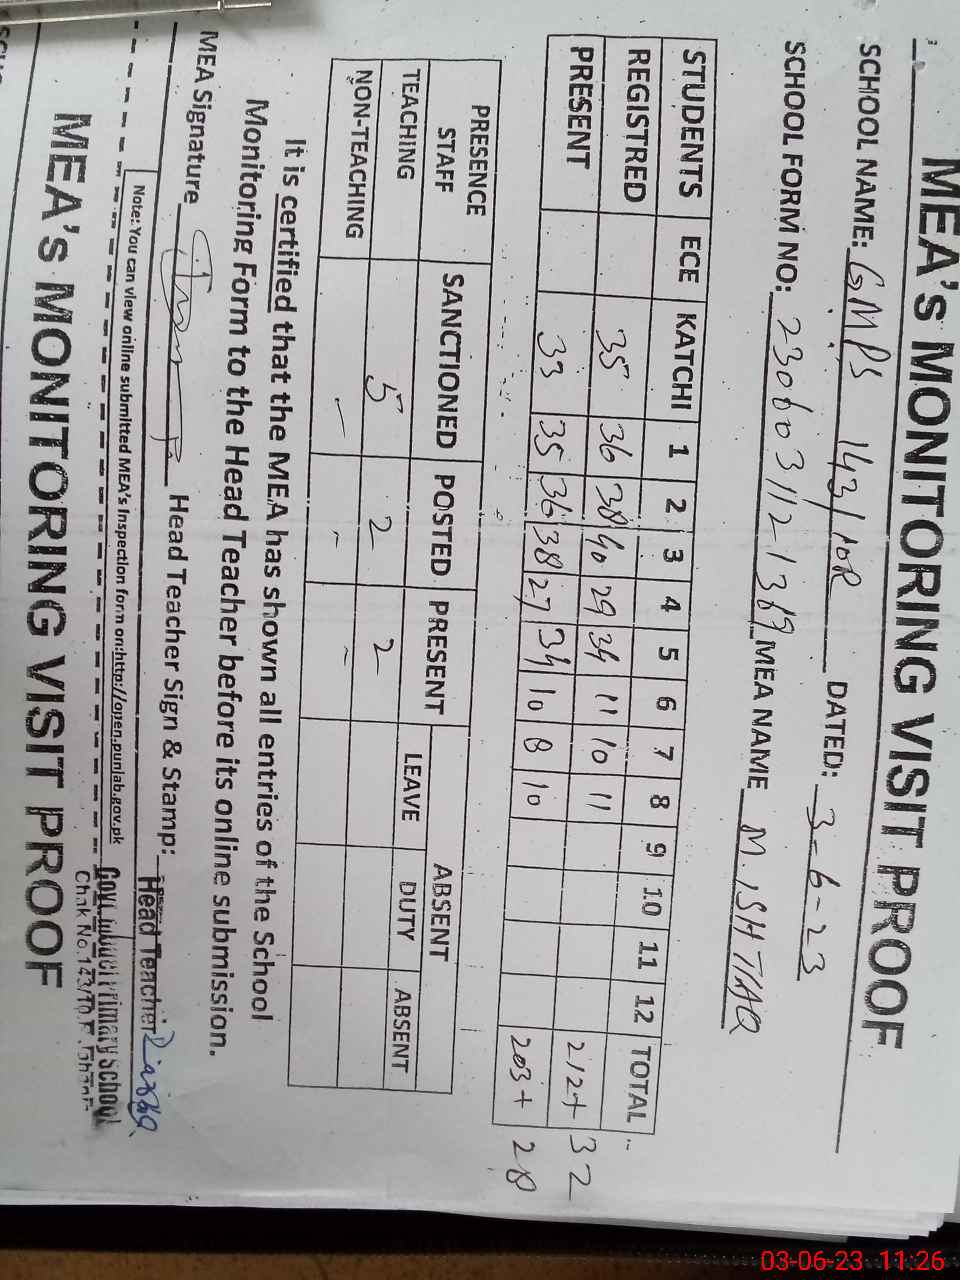 MEA's MONITORING VISIT PROOF
SCHOOL NAME: GMPS 143/10R DATED: 3-6-23
SCHOOL FORM NO: 230603112139 MEA NAME M. ISHTIAQ
STUDENTS ECE KATCHI 1 2 3 4 5 6 7 8 9 10 11 12 TOTAL
REGISTRED 35 36 38 40 29 34 11 10 11 212+ 32
PRESENT 33 35 36 38 27 34 10 8 10 203+ 28
PRESENCE STAFF SANCTIONED POSTED PRESENT ABSENT
LEAVE DUTY ABSENT
TEACHING 5 2 2
NON-TEACHING - - -
It is certified that the MEA has shown all entries of the School
Monitoring Form to the Head Teacher before its online submission.
MEA Signature Head Teacher Sign & Stamp:
Head Teacher
Note: You can view online submitted MEA's Inspection form on:http://open.punlab.gov.pk
Govt. Model Primary School
Chak No. 143/10.R
MEA's MONITORING VISIT PROOF
03-06-23 11:26